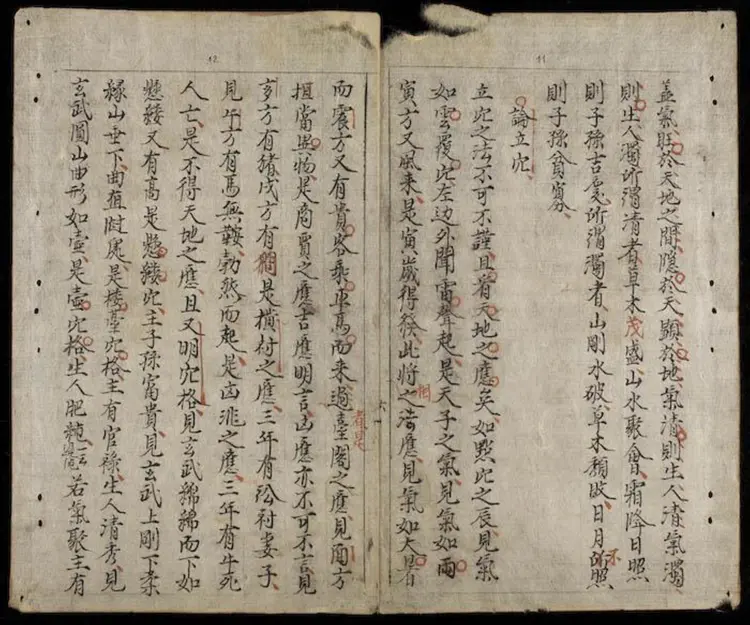 11
蓋氣旺於天地之間隱於天顯於地氣清則生人清氣濁
則生人濁所謂清者草木茂盛山水聚會霜降日照
則子孫吉慶所謂濁者山剛水破草木頹敗日月不照
則子孫貧窮
論立穴
立穴之法不可不謹且看天地之應矣如㸃穴之辰見氣
如雲覆穴左边外聞雷聲起是天子之氣見氣如雨
寅方又風来是寅歲得發此將相之法應見氣如大暑
六
12
而震方又有貴客乘車馬而来過臺閣之應見酉方
担當異物是商賈之應吉應明言凶應亦不可不言見
亥方有猪戌方有是横付之應三年有訟妾子
見午方有馬無鞍勃然而起是凶逃之應三年有牛死
人亡是不得天地之應且又明穴格見玄武綿綿而下如
懸縷又有高是懸縷穴主子孫富貴見玄武上剛下柔
緣山垂下曲直處是楼臺穴格主有官祿生人清秀見
玄武圓山曲形如壺是壺穴格生人肥若氣聚主有